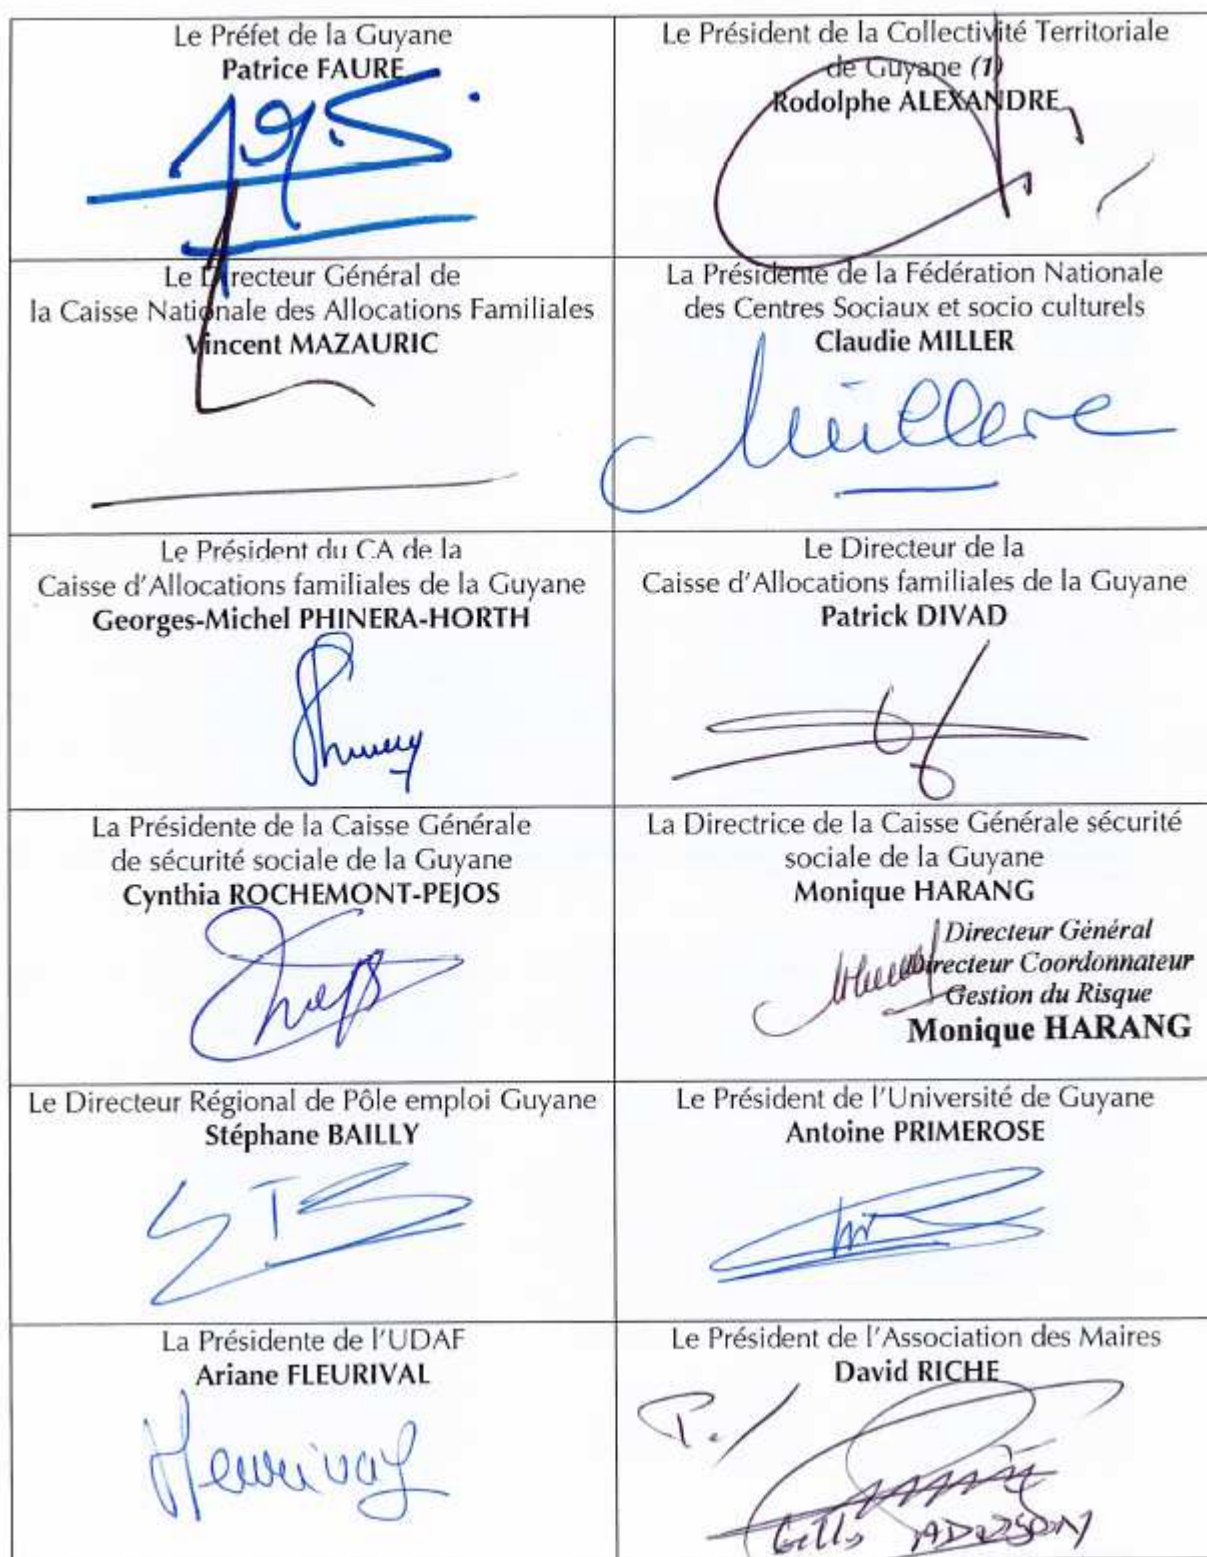 Le Préfet de la Guyane
Patrice FAURE
Le Président de la Collectivité Territoriale
de Guyane (1)
Rodolphe ALEXANDRE
Le Directeur Général de
la Caisse Nationale des Allocations Familiales
Vincent MAZAURIC
La Présidente de la Fédération Nationale
des Centres Sociaux et socio culturels
Claudie MILLER
Le Président du CA de la
Caisse d'Allocations familiales de la Guyane
Georges-Michel PHINERA-HORTH
Le Directeur de la
Caisse d'Allocations familiales de la Guyane
Patrick DIVAD
La Présidente de la Caisse Générale
de sécurité sociale de la Guyane
Cynthia ROCHEMONT-PEJOS
La Directrice de la Caisse Générale sécurité
sociale de la Guyane
Monique HARANG
Directeur Général
Directeur Coordonnateur
Gestion du Risque
Monique HARANG
Le Directeur Régional de Pôle emploi Guyane
Stéphane BAILLY
Le Président de l'Université de Guyane
Antoine PRIMEROSE
La Présidente de l'UDAF
Ariane FLEURIVAL
Le Président de l'Association des Maires
David RICHE
P./